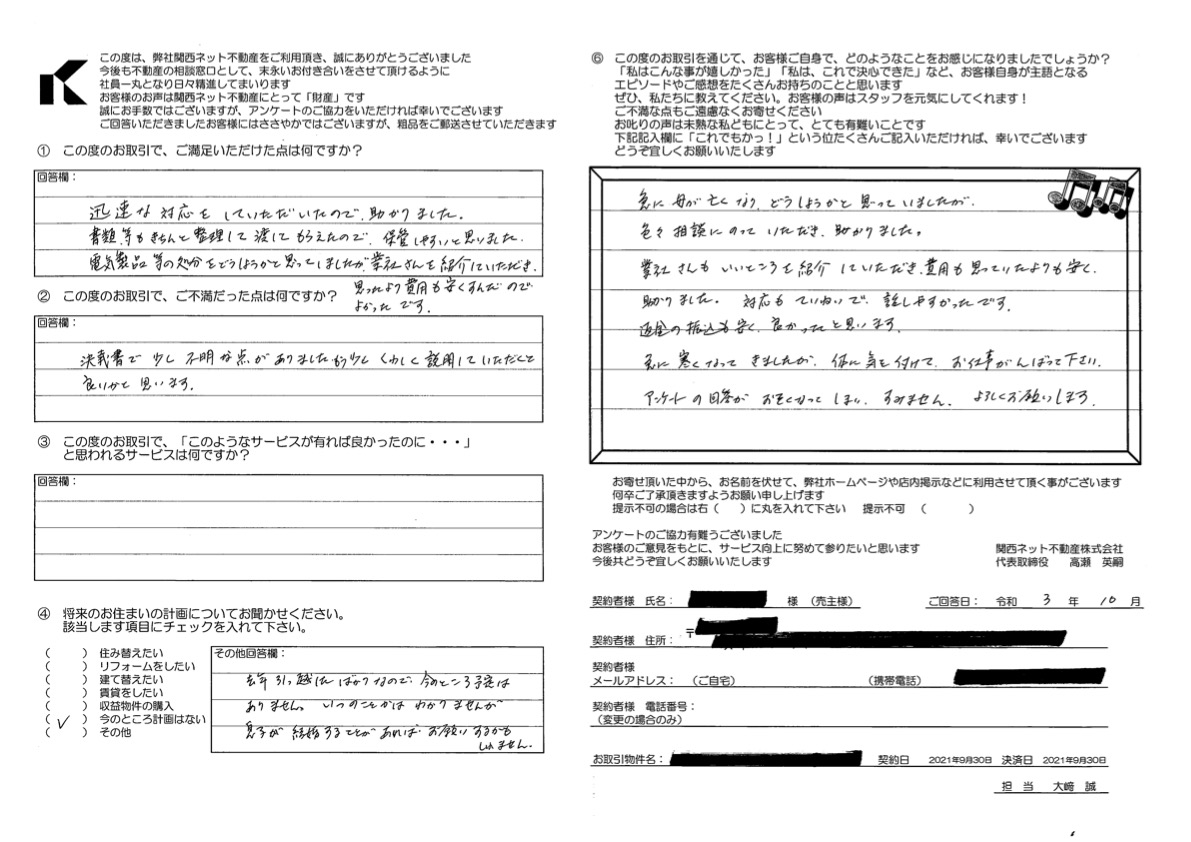 この度は、弊社関西ネット不動産をご利用頂き、誠にありがとうございました
今後も不動産の相談窓口として、末永いお付き合いをさせて頂けるように
社員一丸となり日々精進してまいります
お客様のお声は関西ネット不動産にとって「財産」です
誠にお手数ではございますが、アンケートのご協力をいただければ幸いでございます
ご回答いただきましたお客様にはささやかではございますが、粗品をご郵送させていただきます
① この度のお取引で、ご満足いただけた点は何ですか？
回答欄：
迅速な対応をしていただいたので、助かりました。
書類等もきちんと整理して渡してもらえたので、保管しやすいと思いました。
電気製品等の処分をどうしようかと思ってしましたが業社さんを紹介していただき、
思ったより費用も安くすんだので
よかったです。
② この度のお取引で、ご不満だった点は何ですか？
回答欄：
決裁書で少し不明な点がありましたもう少しくわしく説明していただくと
良いかと思います。
③ この度のお取引で、「このようなサービスが有れば良かったのに・・・」
と思われるサービスは何ですか？
回答欄：
④ 将来のお住まいの計画についてお聞かせください。
該当します項目にチェックを入れて下さい。
（　　） 住み替えたい
（　　） リフォームをしたい
（　　） 建て替えたい
（　　） 賃貸をしたい
（　　） 収益物件の購入
（ ✓ ） 今のところ計画はない
（　　） その他
その他回答欄：
去年引っ越したばかりなので、今のところ予定は
ありません。いつのことかはわかりませんが
息子が結婚することがあればお願いするかも
しれません。
⑥ この度のお取引を通じて、お客様ご自身で、どのようなことをお感じになりましたでしょうか？
「私はこんな事が嬉しかった」「私は、これで決心できた」など、お客様自身が主語となる
エピソードやご感想をたくさんお持ちのことと思います
ぜひ、私たちに教えてください。お客様の声はスタッフを元気にしてくれます！
ご不満な点もご遠慮なくお寄せください
お叱りの声は未熟な私どもにとって、とても有難いことです
下記記入欄に「これでもかっ！」という位たくさんご記入いただければ、幸いでございます
どうぞ宜しくお願いいたします
急に母が亡くなり、どうしようかと思っていましたが、
色々相談にのっていただき、助かりました。
業社さんもいいところを紹介していただき、費用も思っていたよりも安く、
助かりました。 対応もていねいで、話しやすかったです。
返金の振込も早く、良かったと思います。
急に寒くなってきましたが、体に気を付けて、お仕事がんばって下さい。
アンケートの回答がおそくなってしまい、すみません、よろしくお願いします。
お寄せ頂いた中から、お名前を伏せて、弊社ホームページや店内掲示などに利用させて頂く事がございます
何卒ご了承頂きますようお願い申し上げます
提示不可の場合は右（　　）に丸を入れて下さい　提示不可　（　　　）
アンケートのご協力有難うございました
お客様のご意見をもとに、サービス向上に努めて参りたいと思います
今後共どうぞ宜しくお願いいたします
関西ネット不動産株式会社
代表取締役　高瀬　英嗣
契約者様 氏名： 様 （売主様） ご回答日： 令和 3 年 10 月
契約者様 住所： 〒
契約者様
メールアドレス： （ご自宅） （携帯電話）
契約者様 電話番号：
（変更の場合のみ）
お取引物件名： 契約日 2021年9月30日 決済日 2021年9月30日
担 当　大﨑　誠